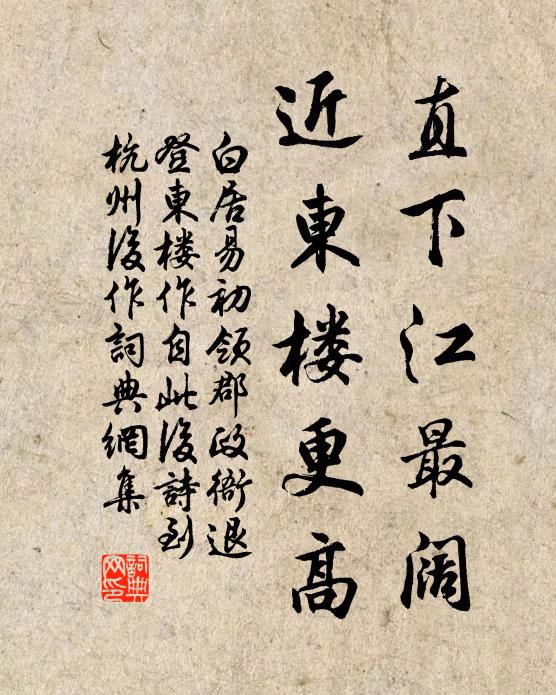 直下江最阔
近東楼更高
白居易初领郡政衙退
登東楼作自此後詩到
杭州後作詞典網集
詞典网印